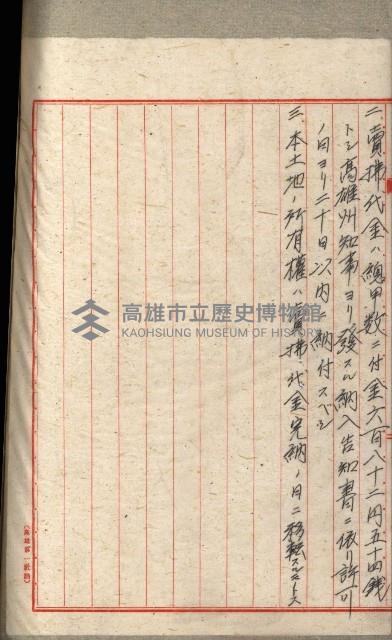 二、賣拂代金ハ總甲数ニ付金六百八十二円五十四銭
トシ高雄州知事ヨリ發スル納入告知書ニ依リ許可
ノ日ヨリ二十日以内ニ納付スベシ
三、本土地ノ所有權ハ賣拂代金完納ノ日ニ移転スルモノトス
高雄市立歷史博物館
KAOHSIUNG MUSEUM OF HISTORY